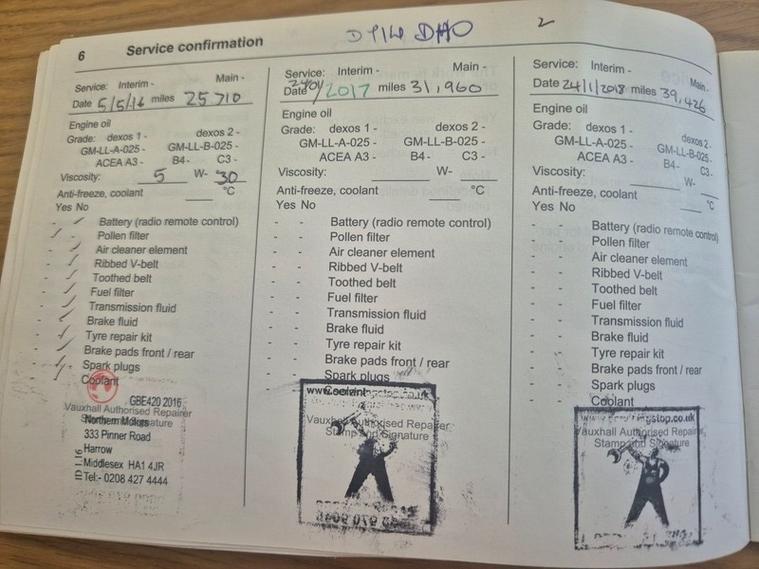 6
Service confirmation
2
Service: Interim - Main -
Date 5/5/16 miles 25710
Engine oil
Grade: dexos 1 - dexos 2 -
GM-LL-A-025 - GM-LL-B-025 -
ACEA A3 - B4 - C3 -
Viscosity: 5 W- 30
Anti-freeze, coolant °C
Yes No
- Battery (radio remote control)
- Pollen filter
- Air cleaner element
- Ribbed V-belt
- Toothed belt
- Fuel filter
- Transmission fluid
- Brake fluid
- Tyre repair kit
- Brake pads front / rear
- Spark plugs
- Coolant
GBE420 2016
Vauxhall Authorised Repairer
Stamp and Signature
Northern Motors
333 Pinner Road
Harrow
Middlesex HA1 4JR
Tel:- 0208 427 4444
ID 1.16
Service: Interim - Main -
Date 24/01/2017 miles 31,960
Engine oil
Grade: dexos 1 - dexos 2 -
GM-LL-A-025 - GM-LL-B-025 -
ACEA A3 - B4 - C3 -
Viscosity: W-
Anti-freeze, coolant °C
Yes No
- - Battery (radio remote control)
- - Pollen filter
- - Air cleaner element
- - Ribbed V-belt
- - Toothed belt
- - Fuel filter
- - Transmission fluid
- - Brake fluid
- - Tyre repair kit
- - Brake pads front / rear
- - Spark plugs
Coolant
Vauxhall Authorised Repairer
Stamp and Signature
Service: Interim - Main -
Date 24/1/2018 miles 39,426
Engine oil
Grade: dexos 1 - dexos 2 -
GM-LL-A-025 - GM-LL-B-025 -
ACEA A3 - B4 - C3 -
Viscosity: W-
Anti-freeze, coolant °C
Yes No
- - Battery (radio remote control)
- - Pollen filter
- - Air cleaner element
- - Ribbed V-belt
- - Toothed belt
- - Fuel filter
- - Transmission fluid
- - Brake fluid
- - Tyre repair kit
- - Brake pads front / rear
- - Spark plugs
- - Coolant
Vauxhall Authorised Repairer
Stamp and Signature